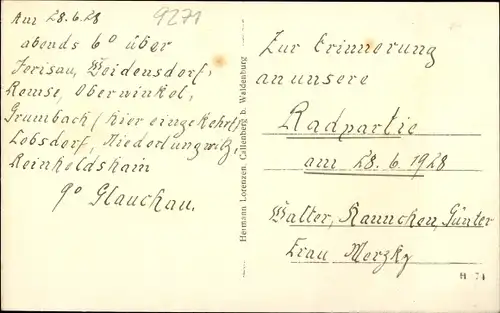 Am 28.6.28
9271
abends 6° über
Jerisau, Weidensdorf,
Remse, Oberwinkel,
Grumbach (hier eingekehrt)
Lobsdorf, Niederlungwitz,
Reinholdshain
9° Glauchau.
Hermann Lorenzen, Callenberg b. Waldenburg
Zur Erinnerung
an unsere
Radpartie
am 28.6.1928
Walter, Hannchen, Günter
Frau Merzky
H 71